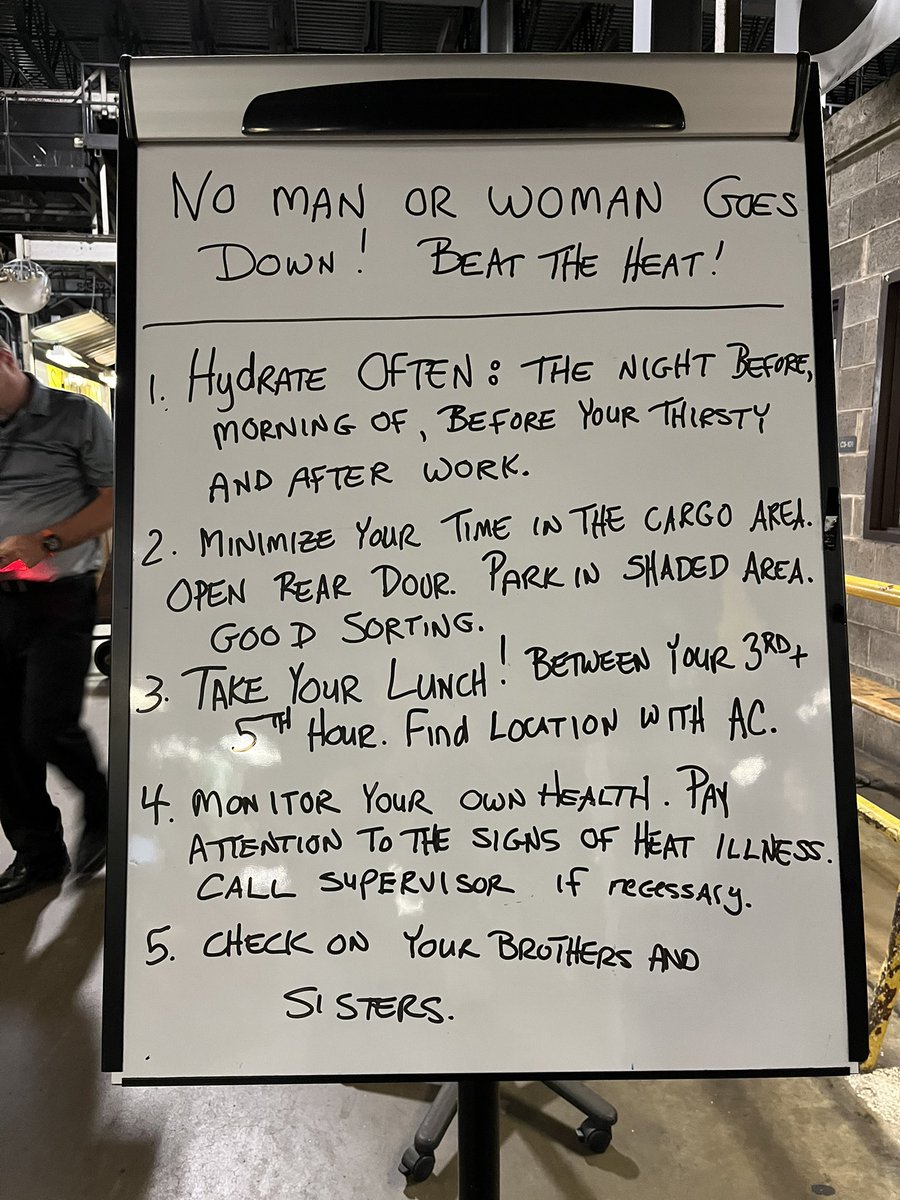 NO MAN OR WOMAN GOES
DOWN! BEAT THE HEAT!
1. HydRATE OFTEN: THE NIGHT BEFORE,
MORNING OF, BEFORE YOUR THIRSTY
AND AFTER WORK.
2. MINIMIZE YOUR TIME IN THE CARGO AREA.
OPEN REAR DOUR. PARK IN SHADED AREA.
GOOD SORTING.
3. TAKE YOUR LUNCH! BETWEEN YOUR 3RD+
5TH HOUR. Find LOCATION WITH AC.
4. MONITOR YOUR OWN HEALTH. PAY
ATTENTION TO THE SIGNS OF HEAT ILLNESS.
CALL SUPERVISOR if necessary.
5. CHECK ON YOUR BROTHERS AND
SISTERS.